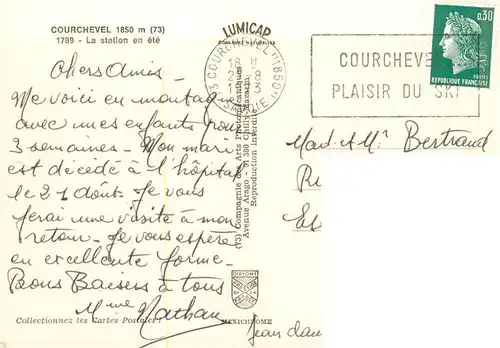 COURCHEVEL 1850 m (73)
1789 - La station en été
Chers Amis -
Me voici en montagne
avec mes enfants pour
3 semaines - Mon mari
est décédé à l'hôpital
le 21 dôut - Je vous
ferai une visite à mon
retour - Je vous espère
en excellente forme -
Bons Baisers à tous
Mme Nathan
Jean
Collectionnez les Cartes Postales !
LUMICAP
(73) Compagnie des Arts Photomécaniques
Avenue Arago - 91 380 Chilly-Mazarin
Reproduction interdite
MEXICHROME
73 COURCHEVEL 1850
18 H
COURCHEVEL
PLAISIR DU SKI
0,30
POSTES
REPUBLIQUE FRANÇAISE
Mad. et Mr Bertrand